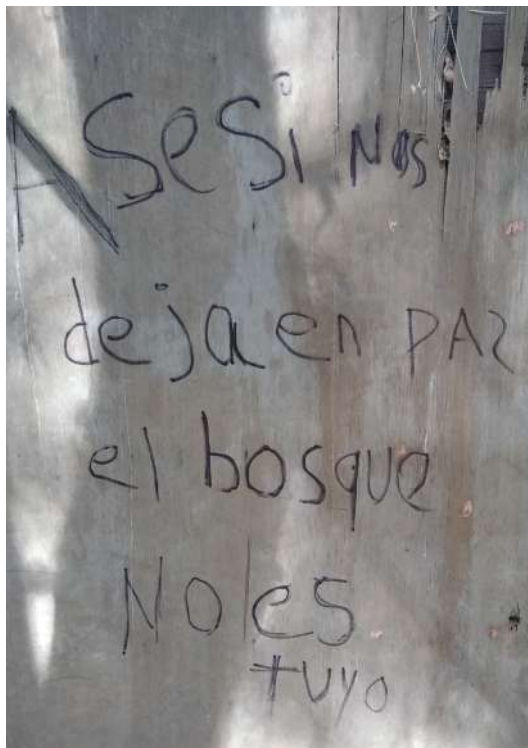 ASeSi Nos
deja en PAZ
el bosque
No es
tuyo